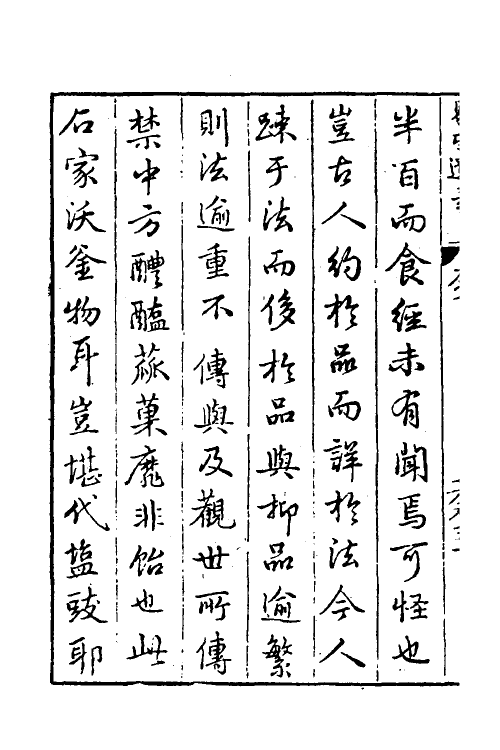 半百而食經未有聞焉可怪也
豈古人約於品而詳於法今人
踈于法而侈於品與抑品逾繁
則法逾重不傳與及觀世所傳
禁中方醴醢蓏菓靡非飴也此
石家沃釜物耳豈堪代塩豉耶